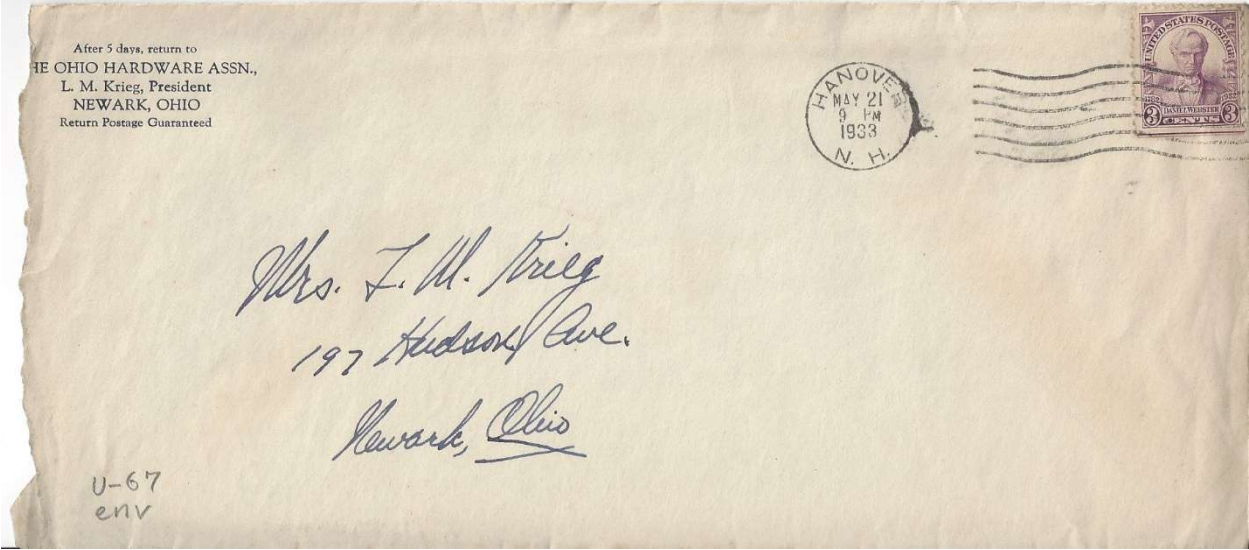 After 5 days, return to
HE OHIO HARDWARE ASSN.,
L. M. Krieg, President
NEWARK, OHIO
Return Postage Guaranteed
HANOVER
MAY 21
9 PM
1933
N. H.
UNITED STATES POSTAGE
DANIEL WEBSTER
3 CENTS 3
Mrs. L. M. Krieg
197 Hudson Ave.
Newark, Ohio
U-67
env